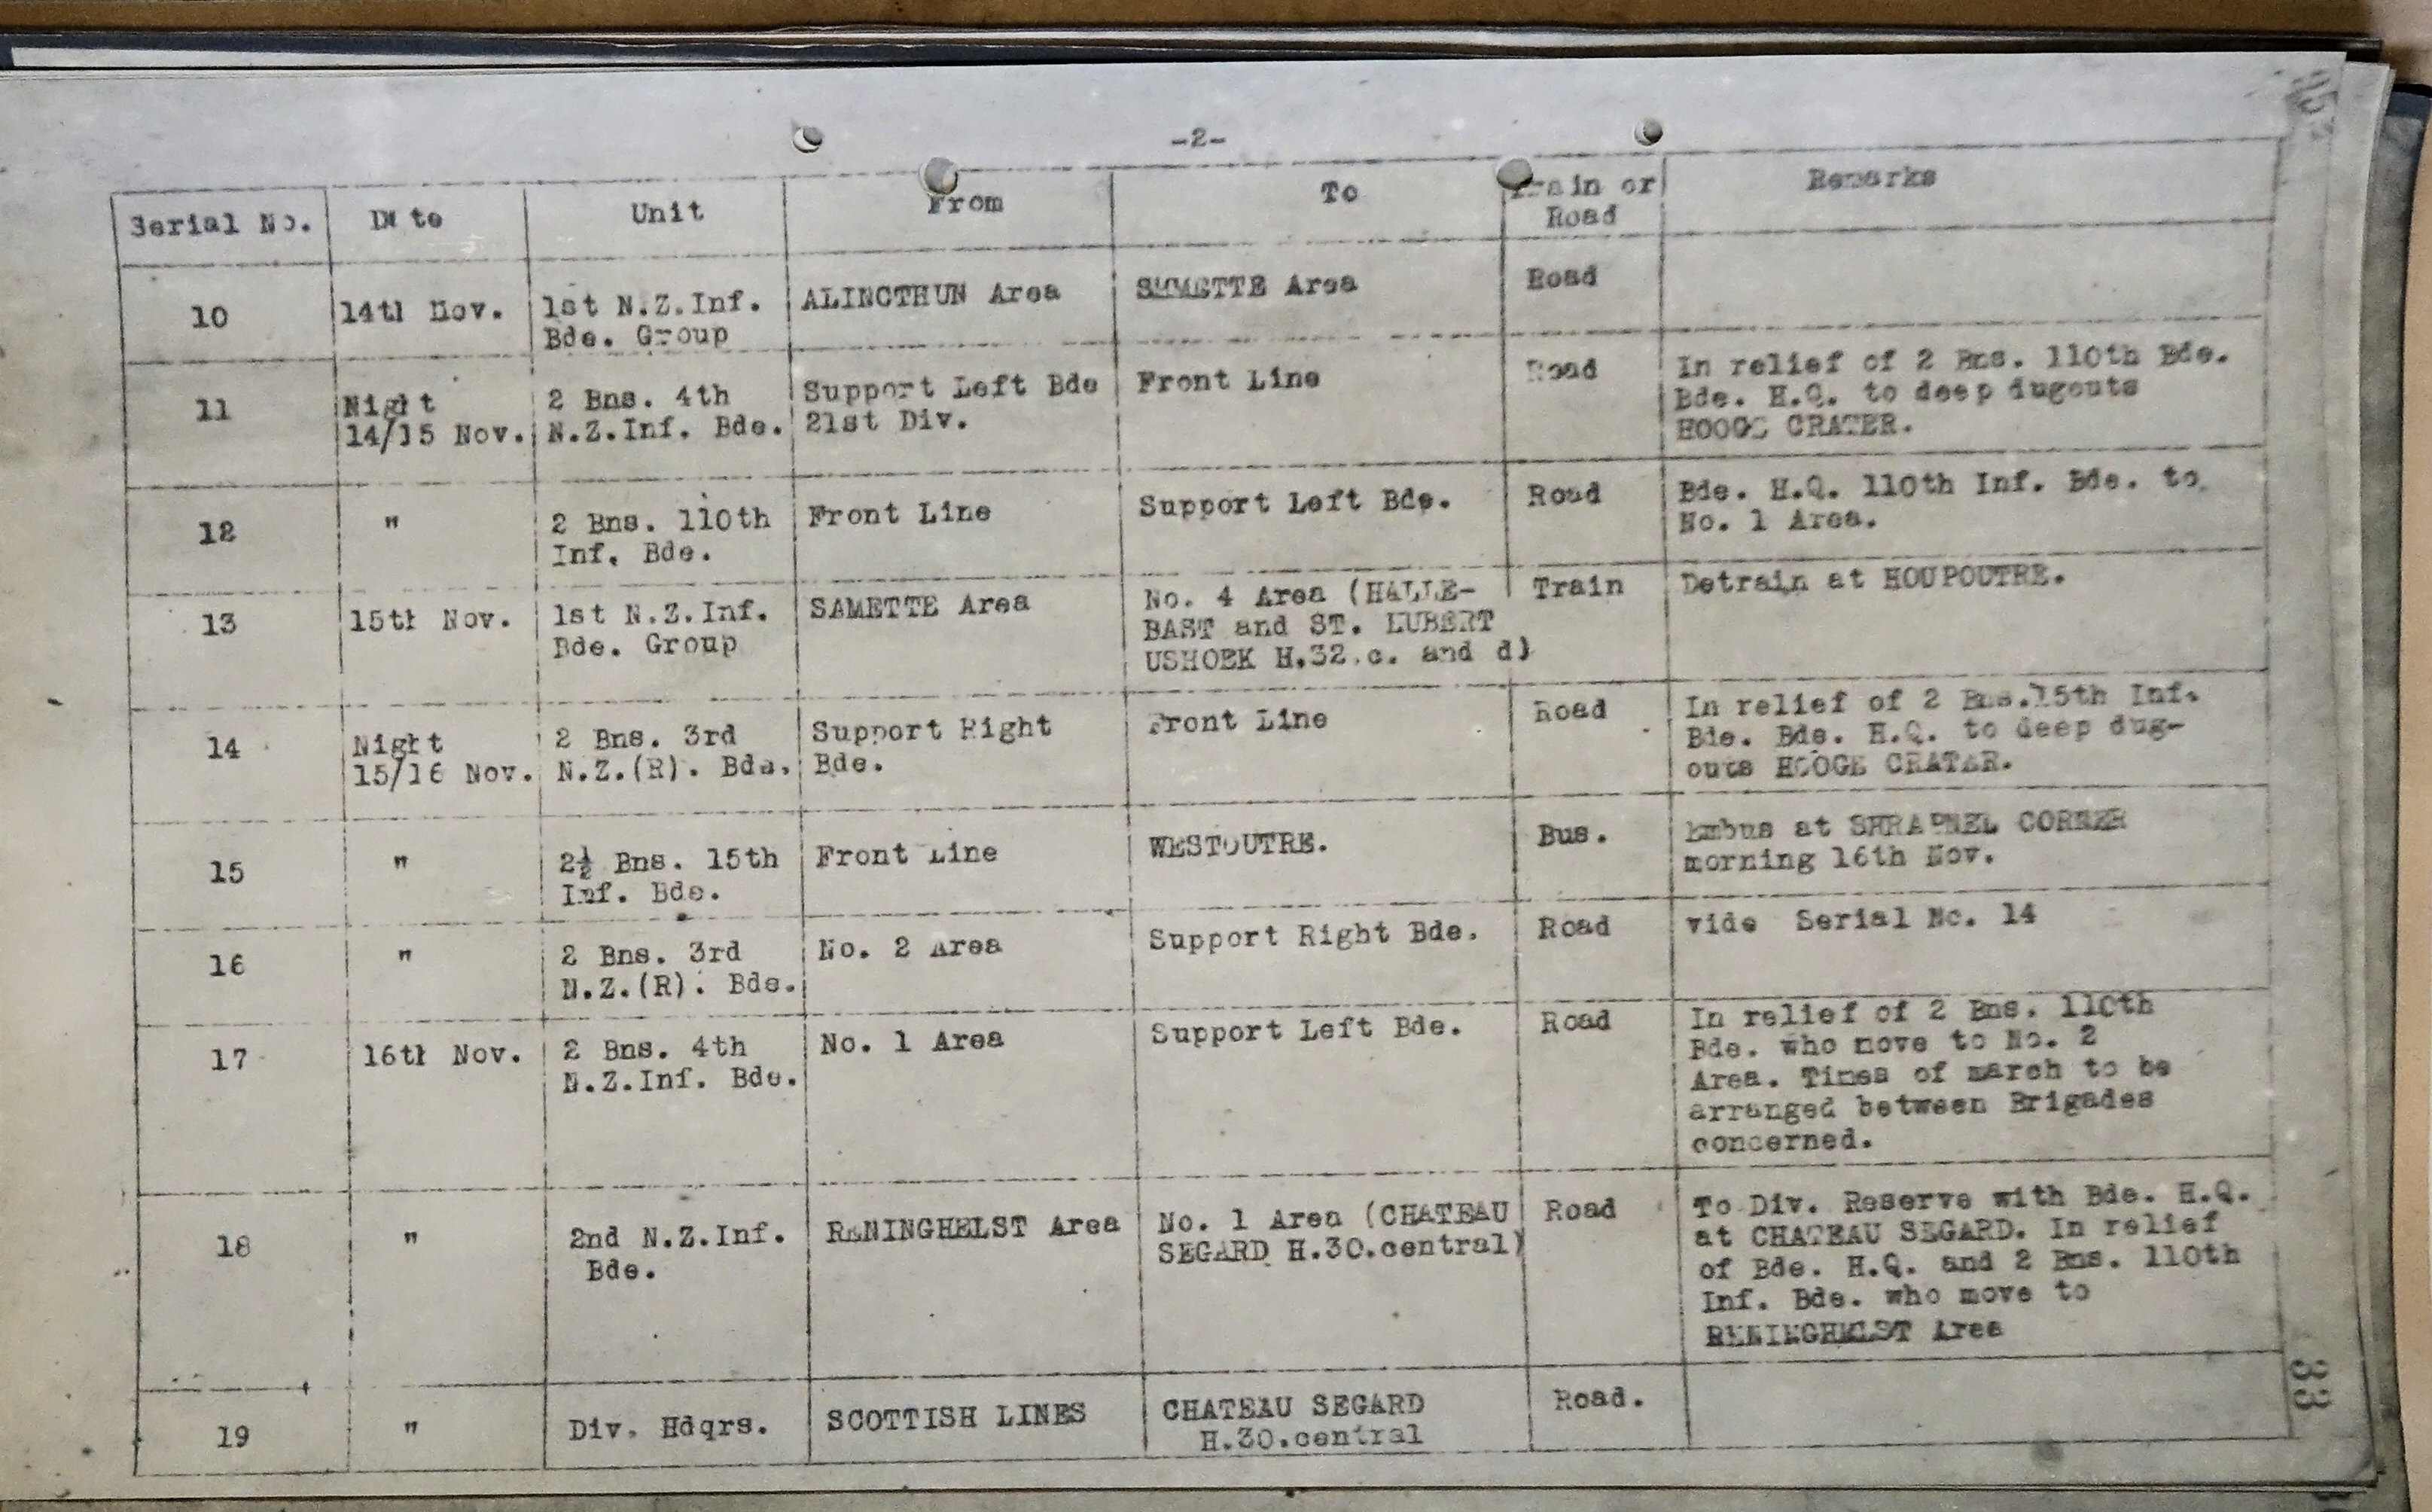 -2-
Serial No.
Date
Unit
From
To
Train or
Road
Remarks
10
14th Nov.
1st N.Z.Inf.
Bde. Group
ALINCTHUN Area
SAMETTE Area
Road
11
Night
14/15 Nov.
2 Bns. 4th
N.Z.Inf. Bde.
Support Left Bde
21st Div.
Front Line
Road
In relief of 2 Bns. 110th Bde.
Bde. H.Q. to deep dugouts
HOOGE CRATER.
12
"
2 Bns. 110th
Inf. Bde.
Front Line
Support Left Bde.
Road
Bde. H.Q. 110th Inf. Bde. to
No. 1 Area.
13
15th Nov.
1st N.Z.Inf.
Bde. Group
SAMETTE Area
No. 4 Area (HALLE-
BAST and ST. HUBERT
USHOEK H.32.c. and d)
Train
Detrain at HOUPOUTRE.
14
Night
15/16 Nov.
2 Bns. 3rd
N.Z.(R). Bde.
Support Right
Bde.
Front Line
Road
In relief of 2 Bns.15th Inf.
Bde. Bde. H.Q. to deep dug-
outs HOOGE CRATER.
15
"
2½ Bns. 15th
Inf. Bde.
Front Line
WESTOUTRE.
Bus.
Embus at SHRAPNEL CORNER
morning 16th Nov.
16
"
2 Bns. 3rd
N.Z.(R). Bde.
No. 2 Area
Support Right Bde.
Road
vide Serial No. 14
17
16th Nov.
2 Bns. 4th
N.Z.Inf. Bde.
No. 1 Area
Support Left Bde.
Road
In relief of 2 Bns. 110th
Bde. who move to No. 2
Area. Times of march to be
arranged between Brigades
concerned.
18
"
2nd N.Z.Inf.
Bde.
RENINGHELST Area
No. 1 Area (CHATEAU
SEGARD H.30.central)
Road
To Div. Reserve with Bde. H.Q.
at CHATEAU SEGARD. In relief
of Bde. H.Q. and 2 Bns. 110th
Inf. Bde. who move to
RENINGHELST Area
19
"
Div. Hdqrs.
SCOTTISH LINES
CHATEAU SEGARD
H.30.central
Road.
33